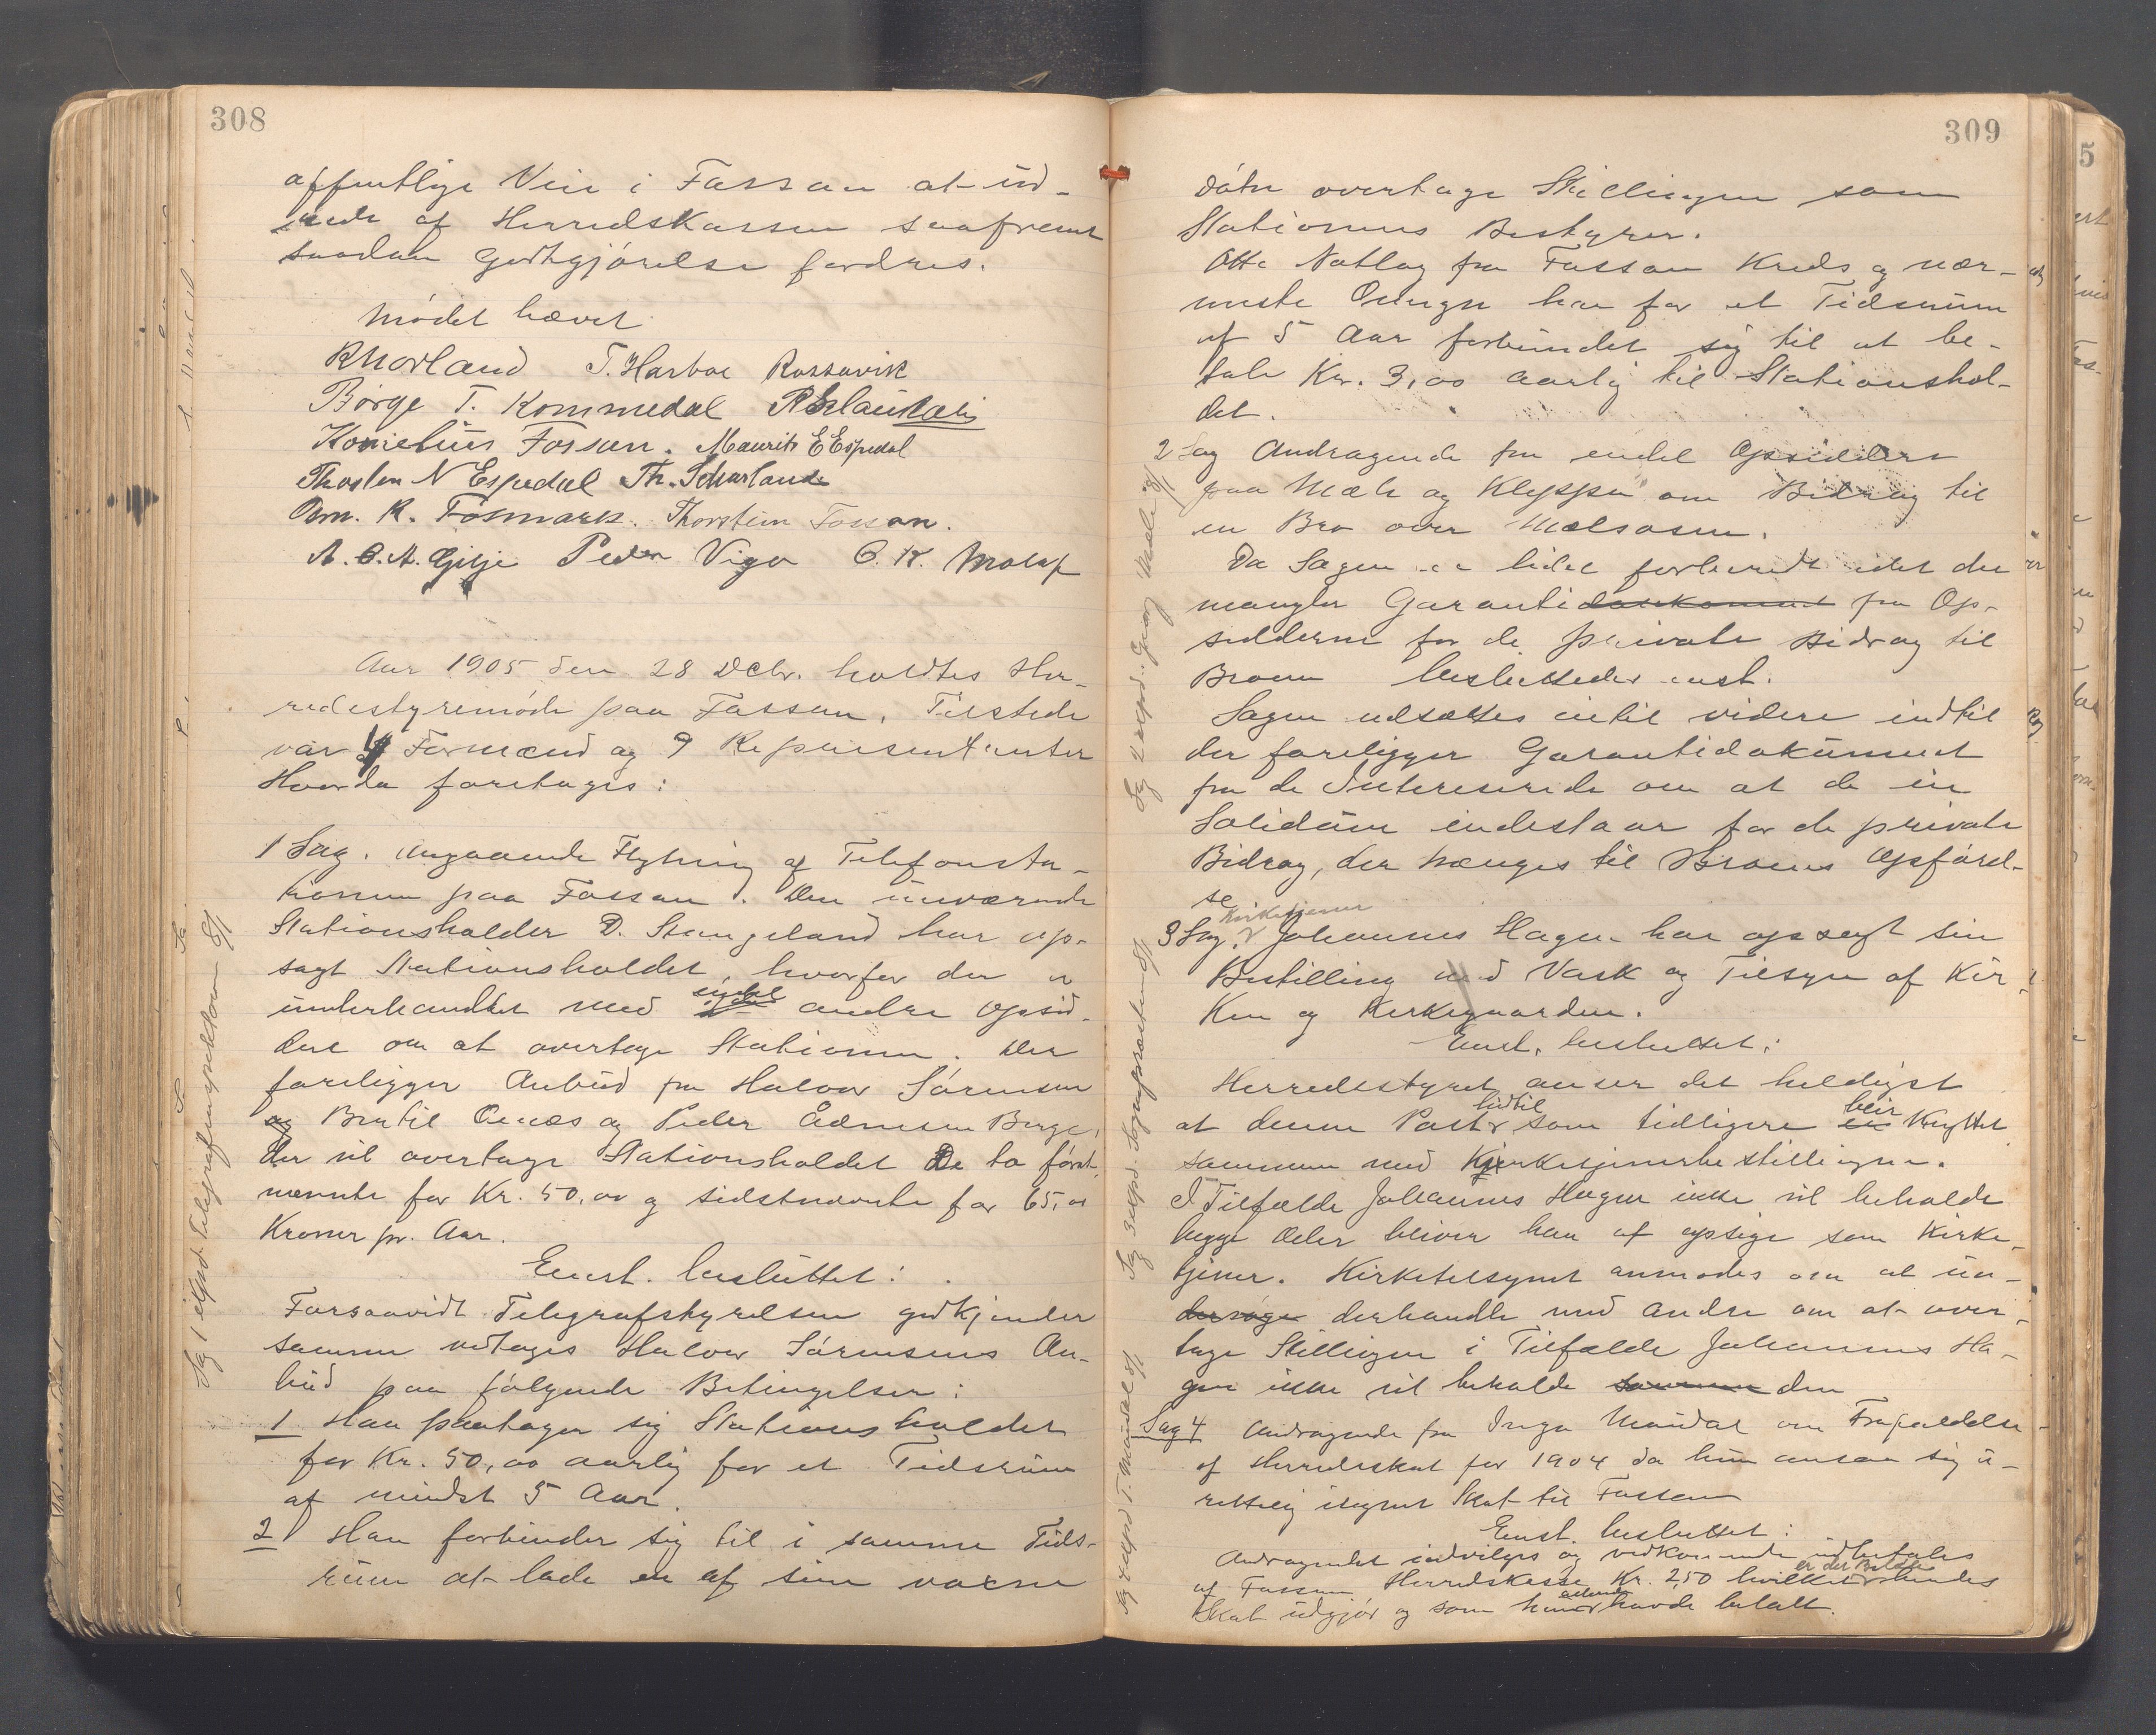 308
offentlige Veie i Fossan at ud-
rede af Herredskassen saafremt
saadan Godtgjørelse fordres.
Mødet hævet
RMorland T. Harboe Rossavik
Børge T. Kommedal
Kornelius Fossan. Maurits E Espedal
Thosten N Espedal Th.
Om. K. Fosmark. Thorstein Fossan.
A. C. A. Gilje Peder Viga O. K.
Aar 1905 den 28 Dcbr. holdtes Her-
redsstyremøde paa Fossan. Tilstede
var 4 Formænd og 9 Repræsentanter
Hvorda foretages:
1 Sag. Angaaende Flytning af Telefonsta-
tionen paa Fossan. Den nuværende
Stationsholder D. Stangeland har op-
sagt Stationsholdet, hvorfor der er
underhandlet med andre Opsid-
dere om at overtage Stationen. Der
foreligger Anbud fra Halvor Sørensen
og Bertil Oenæs og Peder Ådnesen Berge,
der vil overtage Stationsholdet De to først-
nævnte for Kr. 50,00 og sidstnævnte for 65,00
Kroner pr. Aar.
Enst. besluttet:
Forsaavidt Telegrafstyrelsen godkjender
samme vedtages Halvor Sørensens An-
bud paa følgende Betingelser:
1 Han paatager sig Stationsholdet
for Kr. 50,00 aarlig for et Tidsrum
af mindst 5 Aar.
2 Han forbinder sig til i samme Tids-
rum at lade en af sine voxne
Sag 1 exped. Telegrafinspektøren
309
døtre overtage Stillingen som
Stationens Bestyrer.
Otte Natlag fra Fossan Kreds og nær-
meste Omegn har for et Tidsrum
af 5 Aar forbundet sig til at be-
tale Kr. 3,00 aarlig til Stationshol-
det.
2 Sag Andragende fra endel Opsiddere
paa Mæle og Kleppa om Bidrag til
en Bro over Mælsosen.
Da Sagen er lidet forberedt idet der
mangler Garantidokument fra Op-
sidderne for de private Bidrag til
Broen besluttedes enst.
Sagen udsættes indtil videre indtil
der foreligger Garantidokument
fra de Interesserede om at de in
Solidum indestaar for de private
Bidrag, der trænges til Broens Opførel-
se
Kirketjener
3 Sag. Johannes Hagen har opsagt sin
Bestilling med Vask og Tilsyn af Kir-
ken og Kirkegaarden.
Enst. besluttet:
Herredsstyret anser det heldigst
hidtil bleir
at denne Post som tidligere er knyttet
sammen med Kirketjenerbestillingen.
I Tilfælde Johannes Hagen ikke vil beholde
begge Deler bliver han at opsige som Kirke-
tjener. Kirketilsynet anmodes om at un-
dersøge derhandle med andre om at over-
tage Stillingen i Tilfælde Johannes Ha-
gen ikke vil beholde samme den
Sag 4 Andragende fra Inga Maudal om Frafaldelse
af Herredsskat for 1904 da hun ansaa sig u-
rettelig ilignet Skat til Fossan
Enst. besluttet:
Andragendet indvilges og vedkommende udbetales
er det Beløb
af Fossan Herredskasse Kr. 2,50 hvilket hendes
allerede
Skat udgjør og som hun havde betalt.